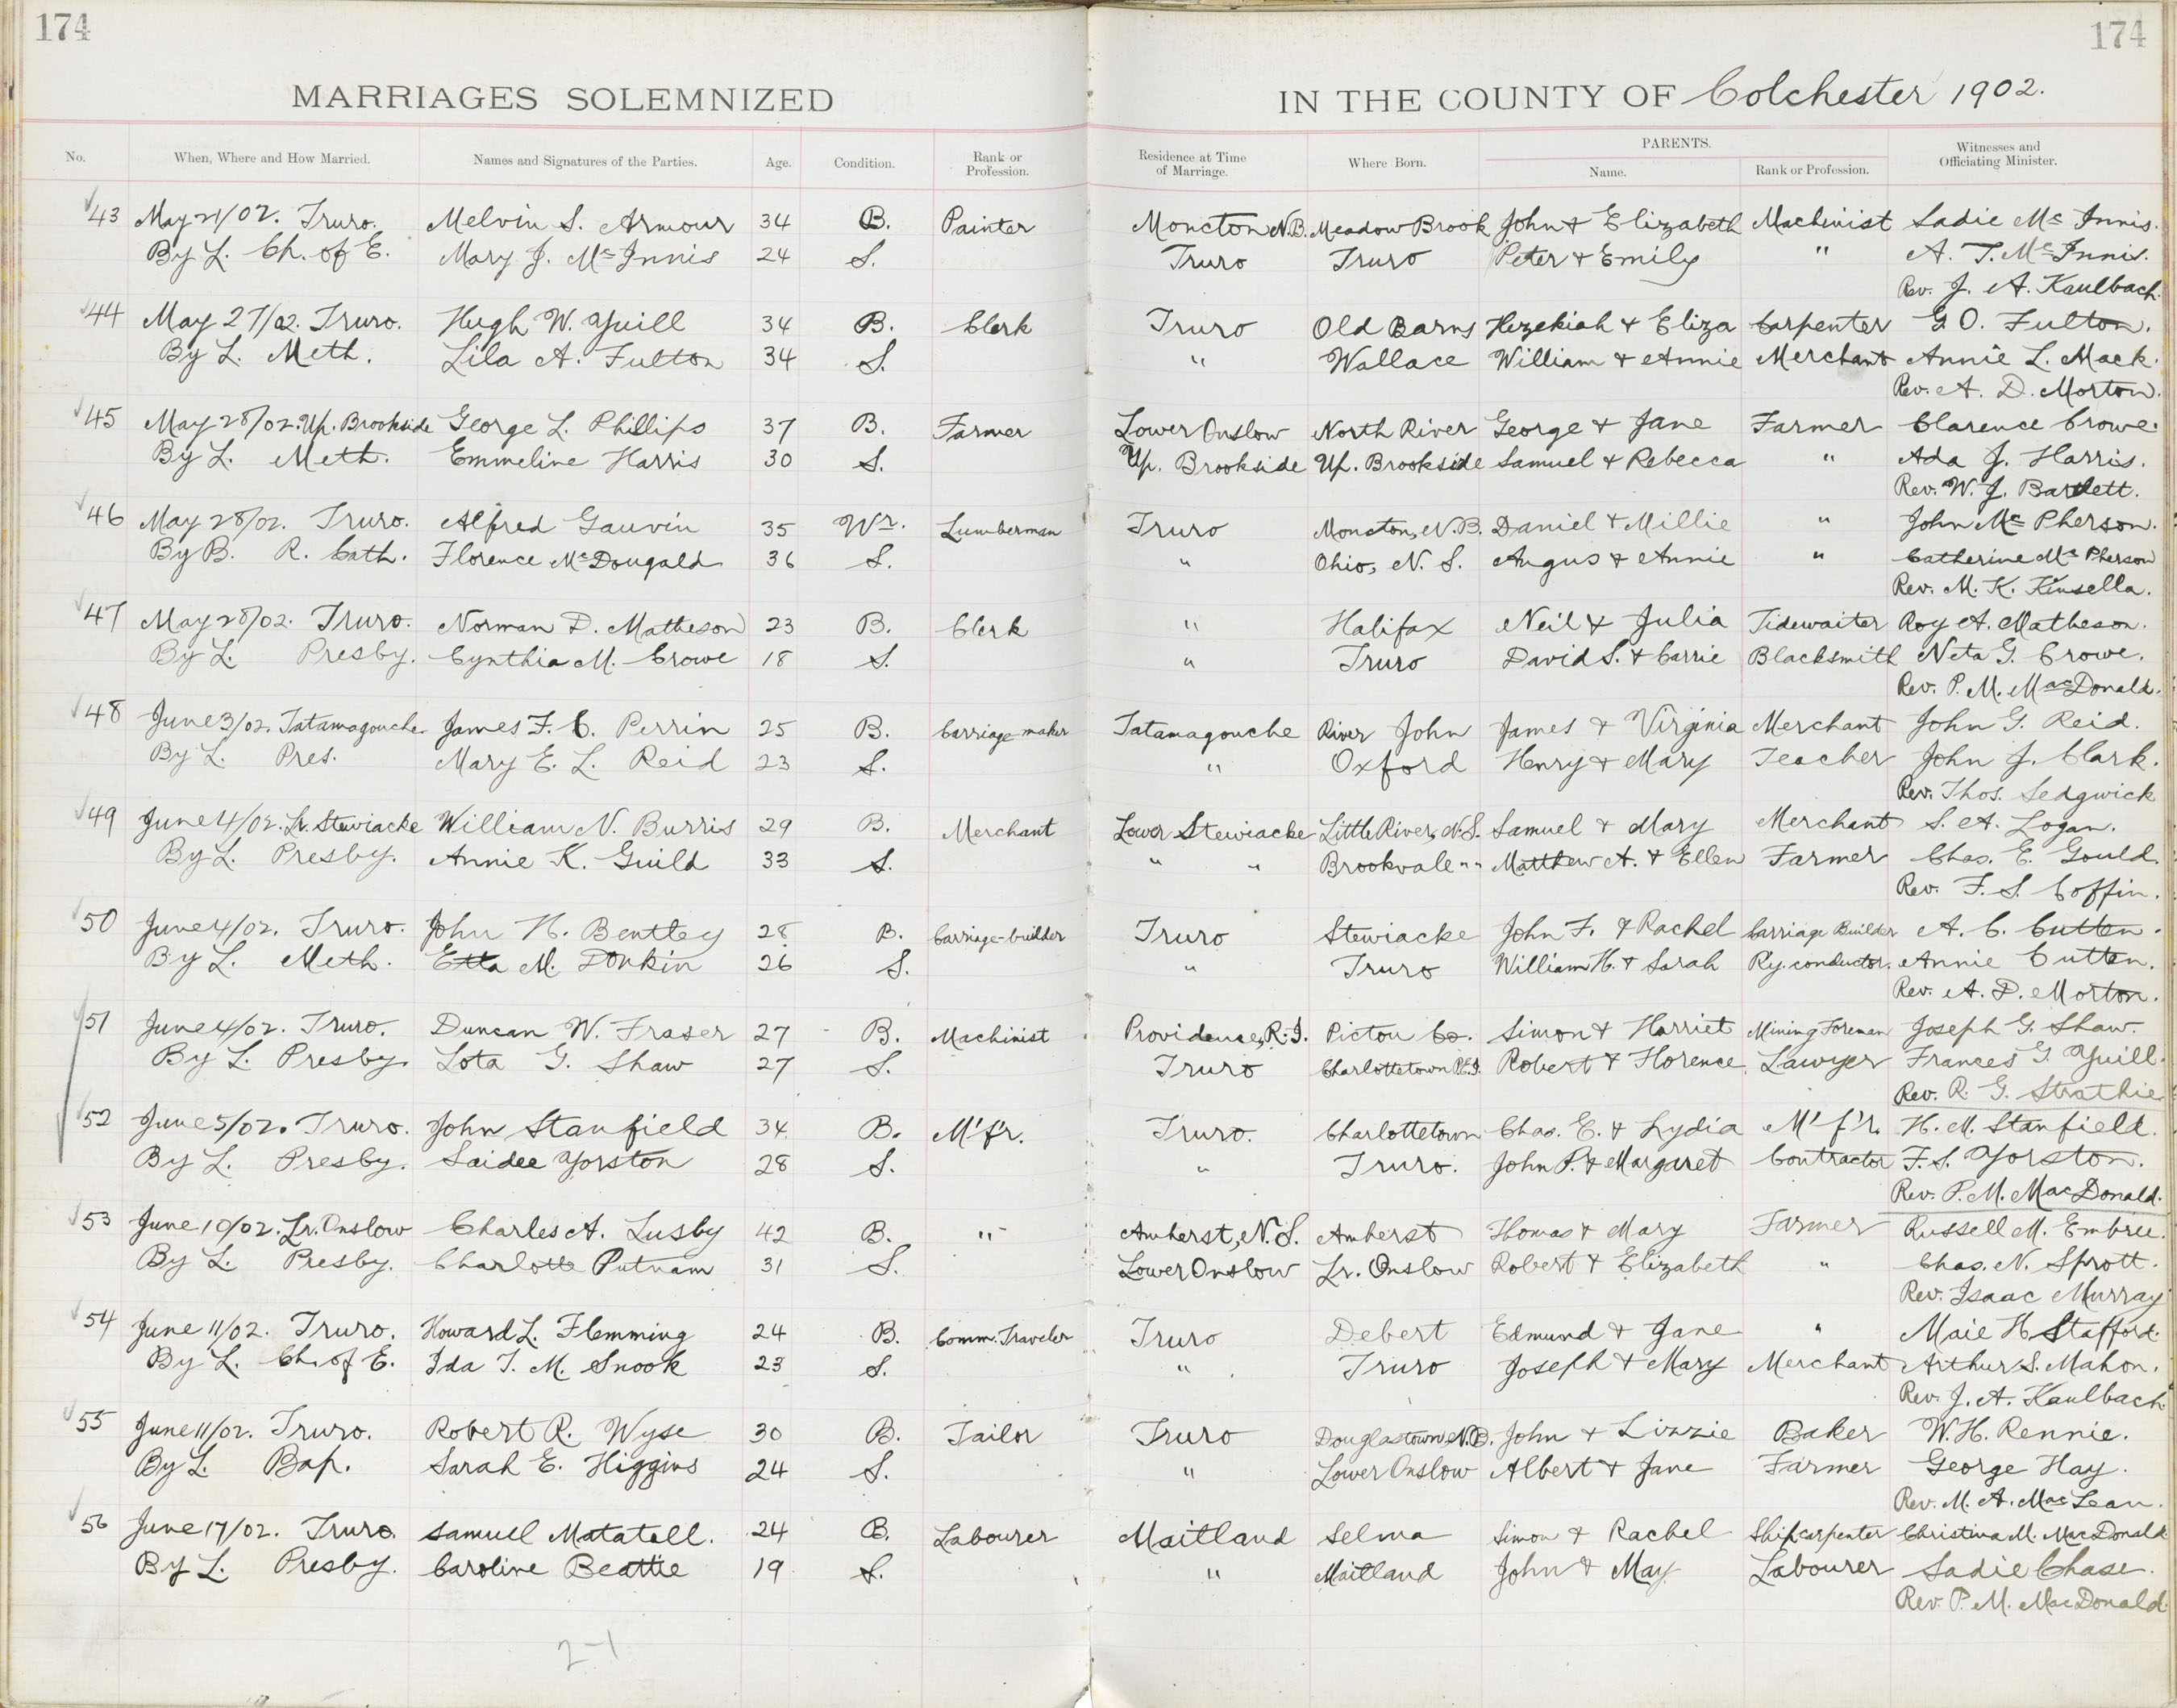 174 174
MARRIAGES SOLEMNIZED IN THE COUNTY OF Colchester 1902.
No. When, Where and How Married. Names and Signatures of the Parties. Age. Condition. Rank or Profession. Residence at Time of Marriage. Where Born. PARENTS. Name. Rank or Profession. Witnesses and Officiating Minister.
43 May 21/02. Truro. Melvin S. Armour 34 B. Painter Moncton N.B. Meadow Brook John & Elizabeth Machinist Sadie Mc Innis.
By L. Ch. of E. Mary J. Mc Innis 24 S. Truro Truro Peter & Emily " A. T. Mc Innis.
Rev. J. A. Kaulbach.
44 May 27/02. Truro. Hugh W. Yuill 34 B. Clerk Truro Old Barns Hezekiah & Eliza Carpenter G. O. Fulton.
By L. Meth. Lila A. Fulton 34 S. " Wallace William & Annie Merchant Annie L. Mack.
Rev. A. D. Morton.
45 May 28/02. Up. Brookside George L. Phillips 37 B. Farmer Lower Onslow North River George & Jane Farmer Clarence Crowe.
By L. Meth. Emmeline Harris 30 S. Up. Brookside Up. Brookside Samuel & Rebecca " Ada J. Harris.
Rev. W. J. Bartlett.
46 May 28/02. Truro. Alfred Gauvin 35 Wr. Lumberman Truro Moncton, N.B. Daniel & Millie " John Mc Pherson.
By B. R. Cath. Florence McDougald 36 S. " Ohio, N. S. Angus & Annie " Catherine Mc Pherson
Rev. M. K. Kinsella.
47 May 28/02. Truro. Norman D. Matheson 23 B. Clerk " Halifax Neil & Julia Tidewaiter Roy A. Matheson.
By L. Presby. Cynthia M. Crowe 18 S. " Truro David S. & Carrie Blacksmith Neta G. Crowe.
Rev. P. M. MacDonald.
48 June 3/02. Tatamagouche James F. C. Perrin 25 B. Carriage-maker Tatamagouche River John James & Virginia Merchant John G. Reid.
By L. Pres. Mary E. L. Reid 23 S. " Oxford Henry & Mary Teacher John J. Clark.
Rev. Thos. Sedgwick
49 June 4/02. Lr. Stewiacke William N. Burris 29 B. Merchant Lower Stewiacke Little River, N.S. Samuel & Mary Merchant S. A. Logan.
By L. Presby. Annie K. Guild 33 S. " " Brookvale " " Matthew A. & Ellen Farmer Chas. E. Gould.
Rev. F. S. Coffin.
50 June 4/02. Truro. John H. Bentley 28 B. Carriage-builder Truro Stewiacke John F. & Rachel Carriage Builder A. C. Cutten.
By L. Meth. Etta M. Donkin 26 S. " Truro William H. & Sarah Ry. conductor. Annie Cutten.
Rev. A. D. Morton.
51 June 4/02. Truro. Duncan W. Fraser 27 B. Machinist Providence, R.I. Pictou Co. Simon & Harriet Mining Foreman Joseph G. Shaw.
By L. Presby. Lota G. Shaw 27 S. Truro Charlottetown P.E.I. Robert & Florence Lawyer Frances G. Yuill.
Rev. R. G. Strathie
52 June 5/02. Truro. John Stanfield 34. B. M'f'r. Truro. Charlottetown Chas. E. & Lydia M'f'r. H. M. Stanfield.
By L. Presby. Saidee Yorston 28 S. " Truro. John P. & Margaret Contractor F. S. Yorston.
Rev. P. M. MacDonald.
53 June 10/02. Lr. Onslow Charles A. Lusby 42 B. " Amherst, N.S. Amherst Thomas & Mary Farmer Russell M. Embree.
By L. Presby. Charlotte Putnam 31 S. Lower Onslow Lr. Onslow Robert & Elizabeth " Chas. N. Sprott.
Rev. Isaac Murray
54 June 11/02. Truro. Howard L. Flemming 24 B. Comm. Traveler Truro Debert Edmund & Jane " Maie H. Stafford.
By L. Ch. of E. Ida T. M. Snook 23 S. " Truro Joseph & Mary Merchant Arthur S. Mahon.
Rev. J. A. Kaulbach
55 June 11/02. Truro. Robert R. Wyse 30 B. Tailor Truro Douglastown, N.B. John & Lizzie Baker W. H. Rennie.
By L. Bap. Sarah E. Higgins 24 S. " Lower Onslow Albert & Jane Farmer George Hay.
Rev. M. A. MacLean.
56 June 17/02. Truro. Samuel Matatall. 24 B. Labourer Maitland Selma Simon & Rachel Ship carpenter Christina M. MacDonald
By L. Presby. Caroline Beattie 19 S. " Maitland John & May Labourer Sadie Chase.
Rev. P. M. MacDonald.
2-1